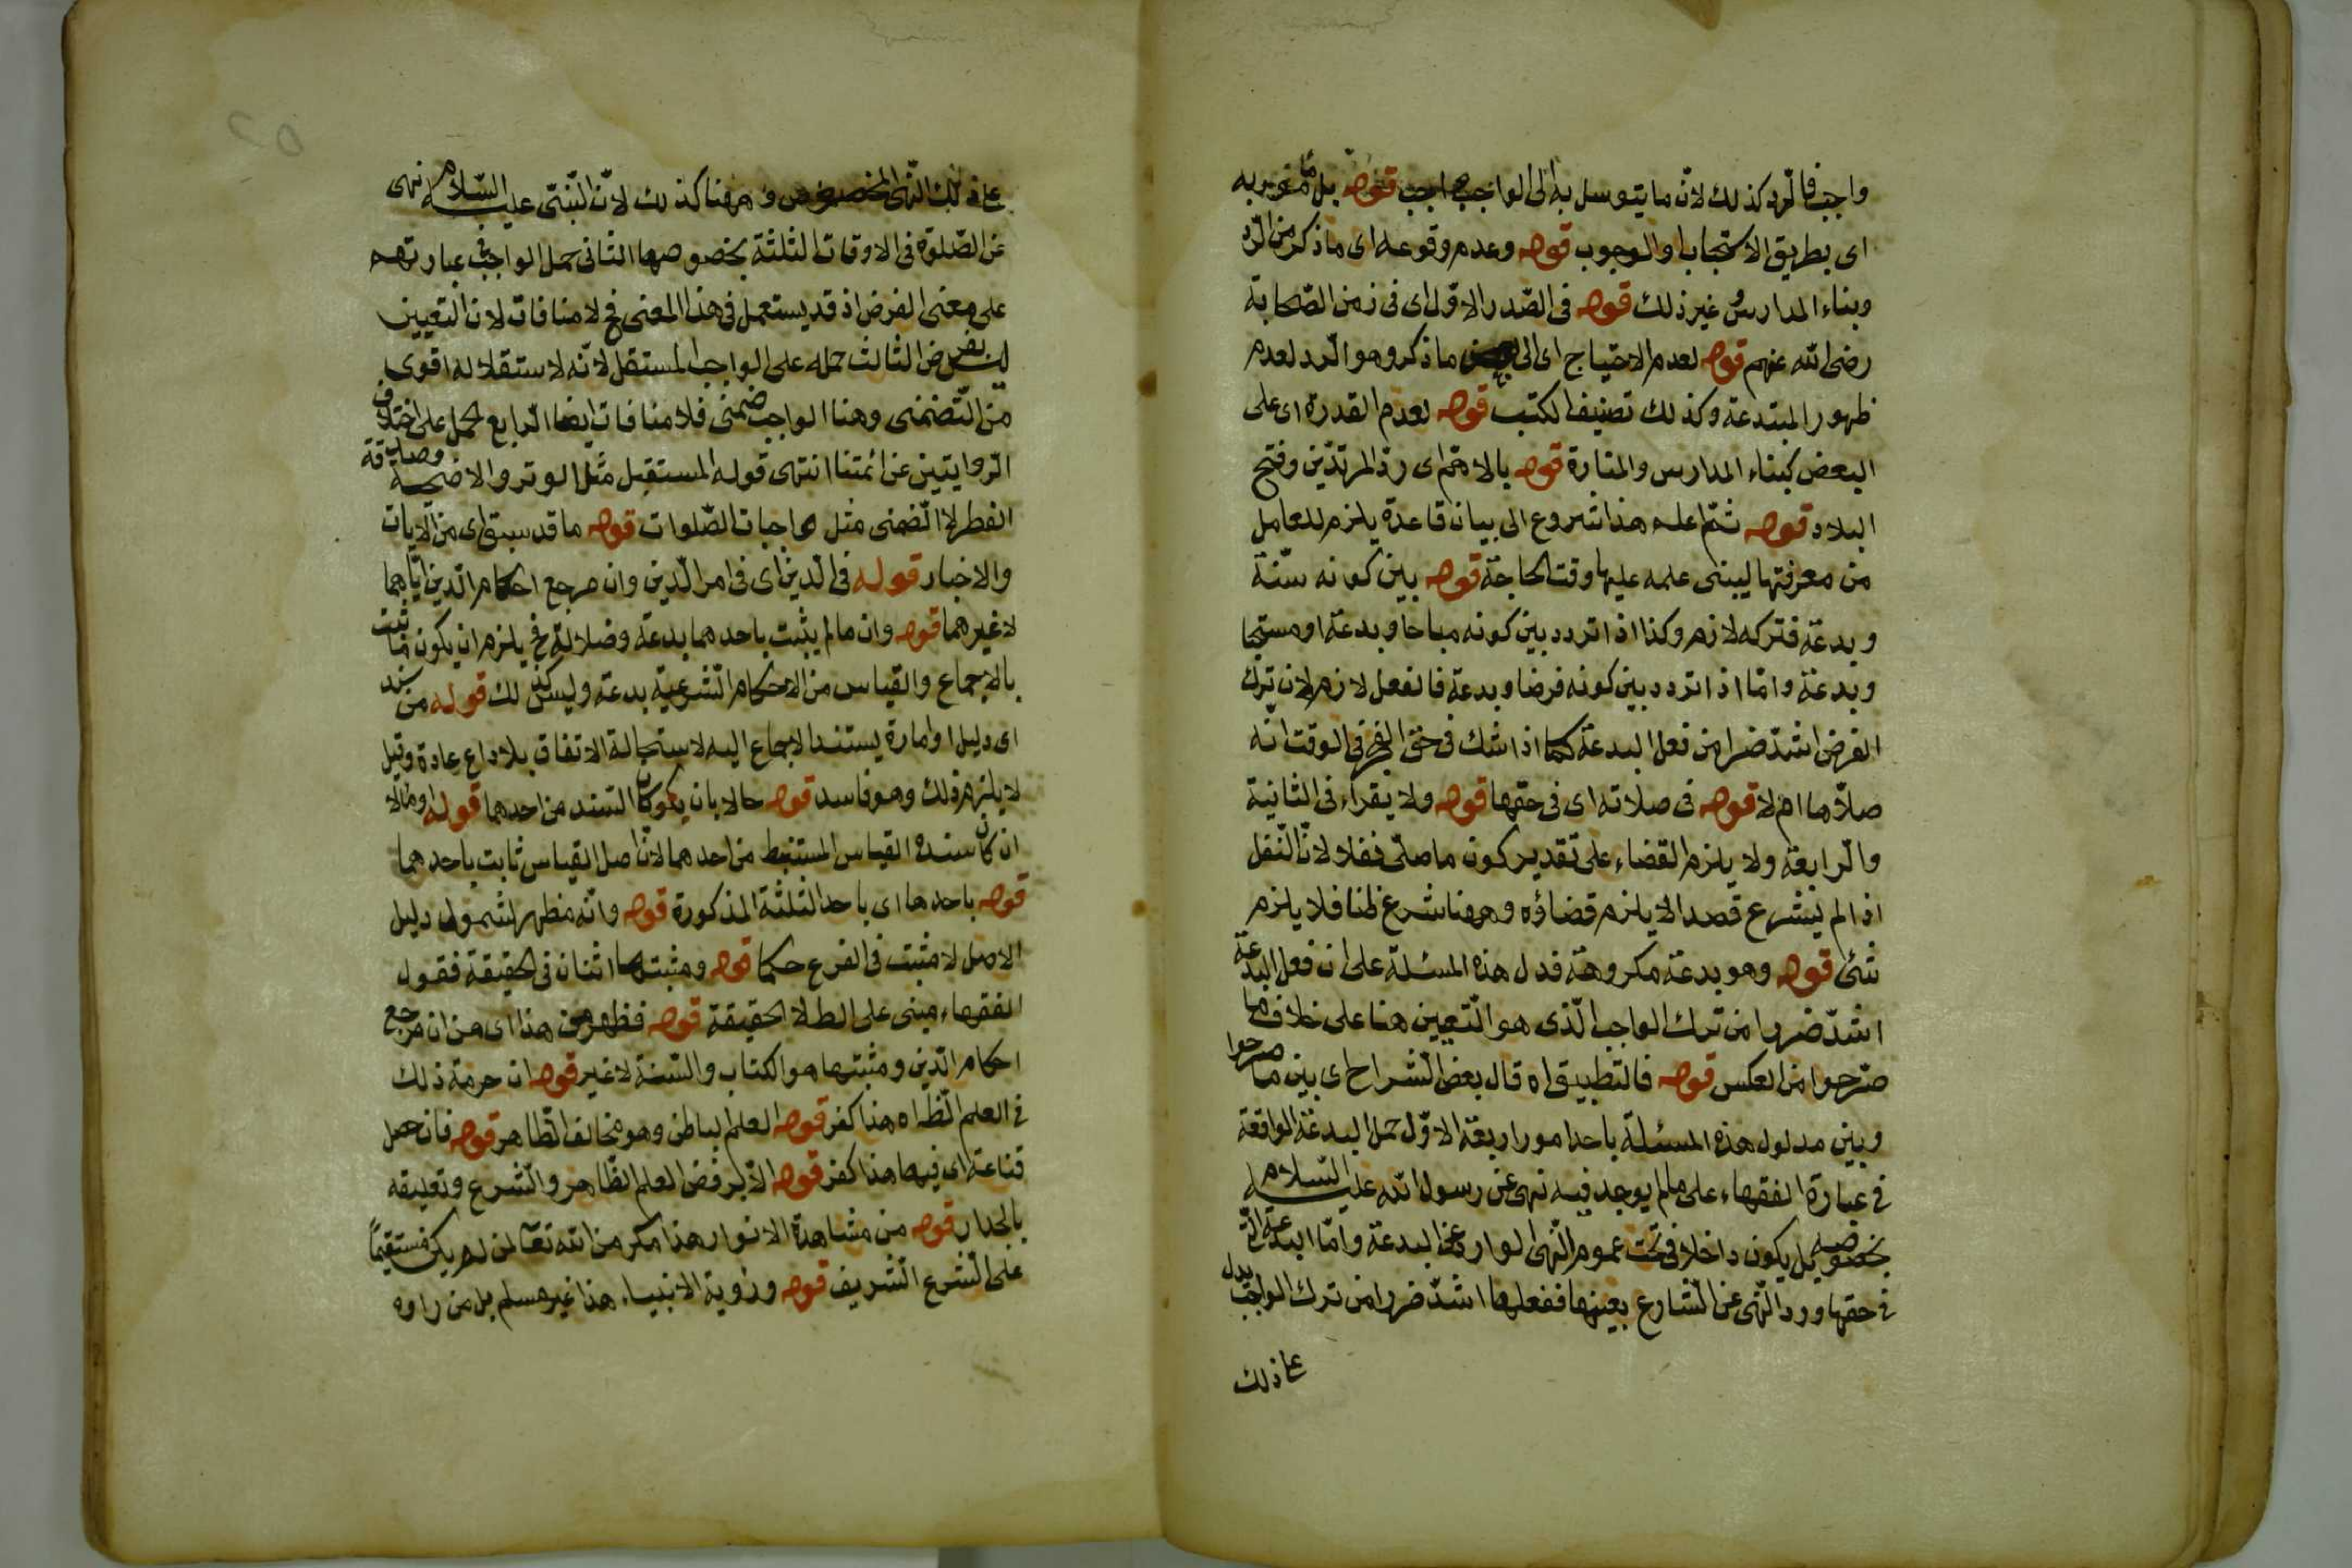 واجب فالرد كذلك لان ما يتوسل به الى الواجب واجب قوله بل مأمور به
اى بطريق الاستحباب او الوجوب قوله وعدم وقوعه اى ما ذكر من الرد
وبناء المدارس وغير ذلك قوله فى الصّدر الاوّل اى فى زمن الصّحابة
رضى الله عنهم قوله لعدم الاحتياج اى الى ما ذكر وهو الرد لعدم
ظهور المبتدعة وكذلك تصنيف الكتب قوله لعدم القدرة اى على
البعض كبناء المدارس والمنارة قوله بالاهمّ اى ردّ المرتدّين وفتح
البلاد قوله ثمّ اعلم هذا شروع الى بيان قاعدة يلزم للعامل
من معرفتها ليبتنى علمه عليها وقت الحاجة قوله بين كونه سنّة
وبدعة فتركه لازم وكذا اذا تردد بين كونه مباحا وبدعة او مستحبا
وبدعة وامّا اذا تردد بين كونه فرضا وبدعة فالفعل لازم لان ترك
الفرض اشدّ ضررا من فعل البدعة كما اذا شك فى حق الفجر فى الوقت انّه
صلّاها ام لا قوله فى صلاته اى فى حقها قوله ولا يقراء فى الثانية
والرّابعة ولا يلزم القضاء على تقدير كون ما صلّى نفلا لانّ النّفل
اذا لم يشرع قصدا لا يلزم قضاؤه وههنا شرع ظنا فلا يلزم
شئ قوله وهو بدعة مكروهة فدل هذه المسئلة على ان فعل البدعة
اشدّ ضررا من ترك الواجب الّذى هو التّعيين هنا على خلاف ما
صرّحوا من العكس قوله فالتطبيق اه قال بعض الشّراح اى بين ما صرحوا
وبين مدلول هذه المسئلة باحد امور اربعة الاوّل حمل البدعة الواقعة
فى عبارة الفقهاء على ما لم يوجد فيه نهى عن رسول الله عليه السّلام
بخصوصه بل يكون داخلا فى تحت عموم النّهى الوارد عن البدعة وامّا البدعة الّتى
فى حقها ورد النّهى عن الشّارع بعينها ففعلها اشدّ ضررا من ترك الواجب يدل
على ذلك
على ذلك النّهى المخصوص و ههنا كذلك لانّ النّبىّ عليه السّلام نهى
عن الصّلوة فى الاوقات الثلثة بخصوصها الثانى حمل الواجب فى عبارتهم
على معنى الفرض اذ قد يستعمل فى هذا المعنى فح لا منافات لان التعيين
ليس بفرض الثالث حمله على الواجب المستقل لانّه لاستقلاله اقوى
من التّضمنى وهنا الواجب ضمنى فلا منافات ايضا الرابع الحمل على اختلاف
الرّوايتين عن ائمتنا انتهى قوله المستقبل مثل الوتر والاضحية وصدقة
الفطر لا الضّمنى مثل واجبات الصّلوات قوله ما قد سبق اى من الآيات
والاخبار قوله فى الدّين اى فى امر الدّين وان مرجع احكام الدّين ايّاهما
لا غيرهما قوله وان ما لم يثبت باحدهما بدعة وضلالة فح يلزم ان يكون ما ثبت
بالاجماع والقياس من الاحكام الشّرعية بدعة وليس كذلك قوله من سند
اى دليل او امارة يستند الاجماع اليه لاستحالة الاتفاق بلا داع عادة وقيل
لا يلزم ذلك وهو فاسد قوله حالا بان يكون السّند من احدهما قوله او مآلا
ان كان سنده القياس المستنبط من احدهما لانّ اصل القياس ثابت باحدهما
قوله باحدها اى باحد الثلثة المذكورة قوله وانّه مظهر لشمول دليل
الاصل لا مثبت فى الفرع حكما قوله ومثبتها اثنان فى الحقيقة فقول
الفقهاء مبنى على الظ لا الحقيقة قوله فظهر من هذا اى من ان مرجع
احكام الدّين ومثبتها هو الكتاب والسّنة لا غير قوله ان حرمة ذلك
فى العلم الظّاه هذا كفر قوله العلم الباطن وهو مخالف الظّاهر قوله فان حصل
قناعة اى فيها هذا كفر قوله الا برفض العلم الظّاهر والشّرع وتعليقه
بالجدار قوله من مشاهدة الانوار هذا مكر من الله تعالى لمن لم يكن مستقيماً
على الشّرع الشّريف قوله ورؤية الانبياء هذا غير مسلم بل من راوه